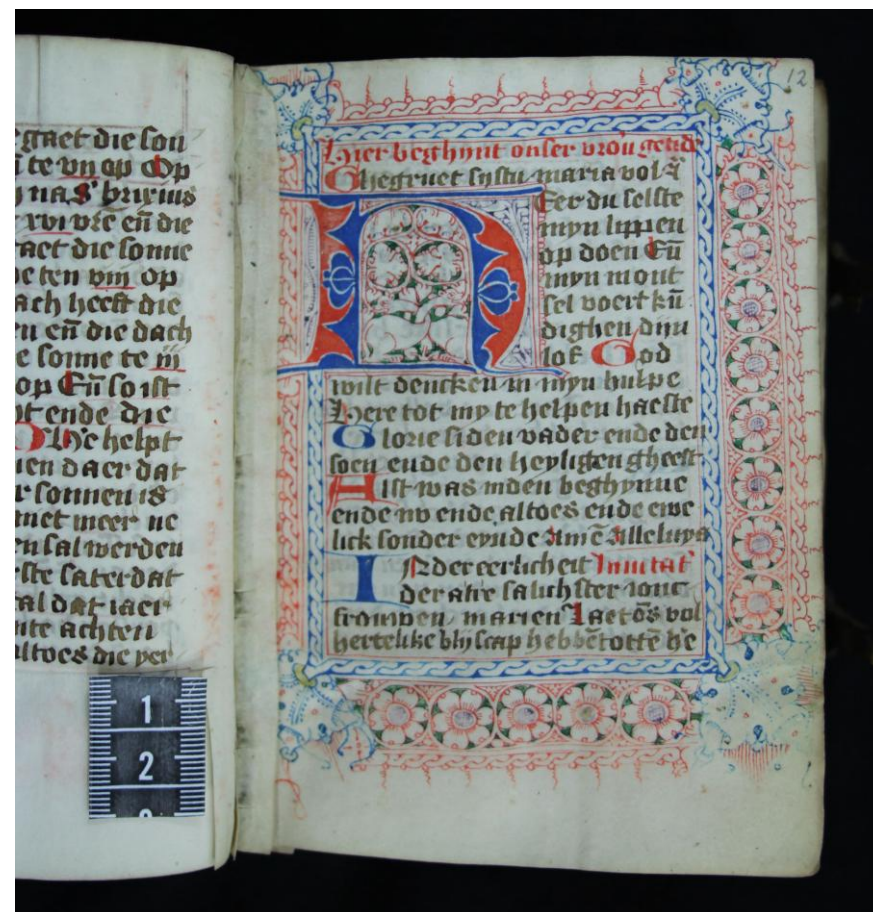 egaet die son
te vij op Op
na S' brixius
xvi vre en̄ die
aet die sonne
e ten viij op
ach heeft die
en̄ die dach
e sonne te iij
op En̄ so ist
t ende die
helpt
ien daer dat
r sonnen is
niet meer
en sal werden
ste saterdat
al dat iaer
achten
altoes die
1
2
12
Hier beghynt onser vrou getide
Ghegruet sijstu maria vol
HEer du selste
myn lippen
op doen En̄
myn mont
sel voert kū
dighen dijn
lof God
wilt dencken in myn hulpe
Here tot my te helpen haeste
Glorie si den vader ende den
soen ende den heyligen gheest
Alst was inden beghynne
ende nv ende altoes ende ewe
lick sonder eynde Amē Alleluya
IN der eerlicheit Inuitat
der alre salichster ionc
frouwen marien Laet ōs vol
hertelike blijscap hebbē totte